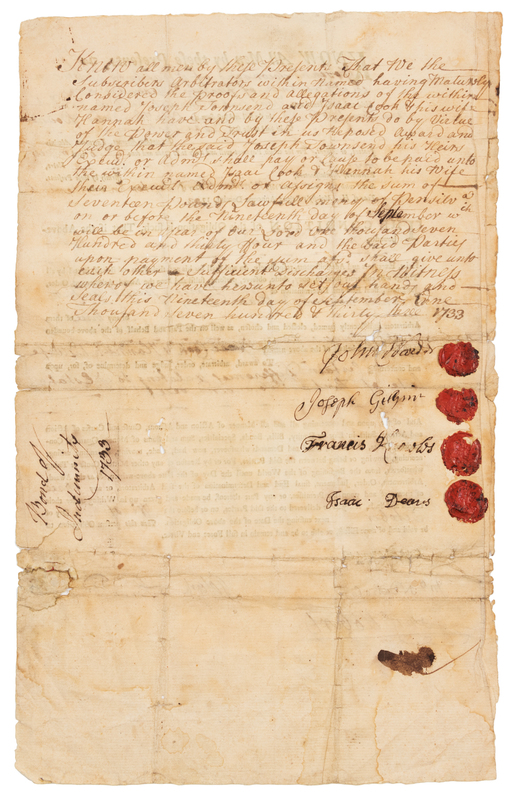 Know all men by these Presents That We the
Subscribers Arbitrators within Named having Maturely
Considered the Proofs and Allegations of the within
named Joseph Townsend and Isaac Cook & his wife
Hannah have and by these Presents do by Virtue
of the Power and Trust in us Reposed Award and
Judge that the said Joseph Townsend his Heirs
Execut. or Adm.rs shall pay or Cause to be paid unto
the within named Isaac Cook & Hannah his Wife
their Execut. Adm.rs or assigns the sum of
Seventeen Pounds Lawfull money of Pensilva
on or before the Nineteenth day of September w.ch
will be in year of our Lord one thousand seven
Hundred and thirty ffour and the said Parties
upon payment of the sum afs.d shall give unto
each other Sufficient discharges In Witness
whereof we have hereunto set our hands and
Seals this Nineteenth day of September One
Thousand Seven hundred & thirty three 1733
Joseph Gilpin
Francis
Isaac
Bond of
Indemnity
1733